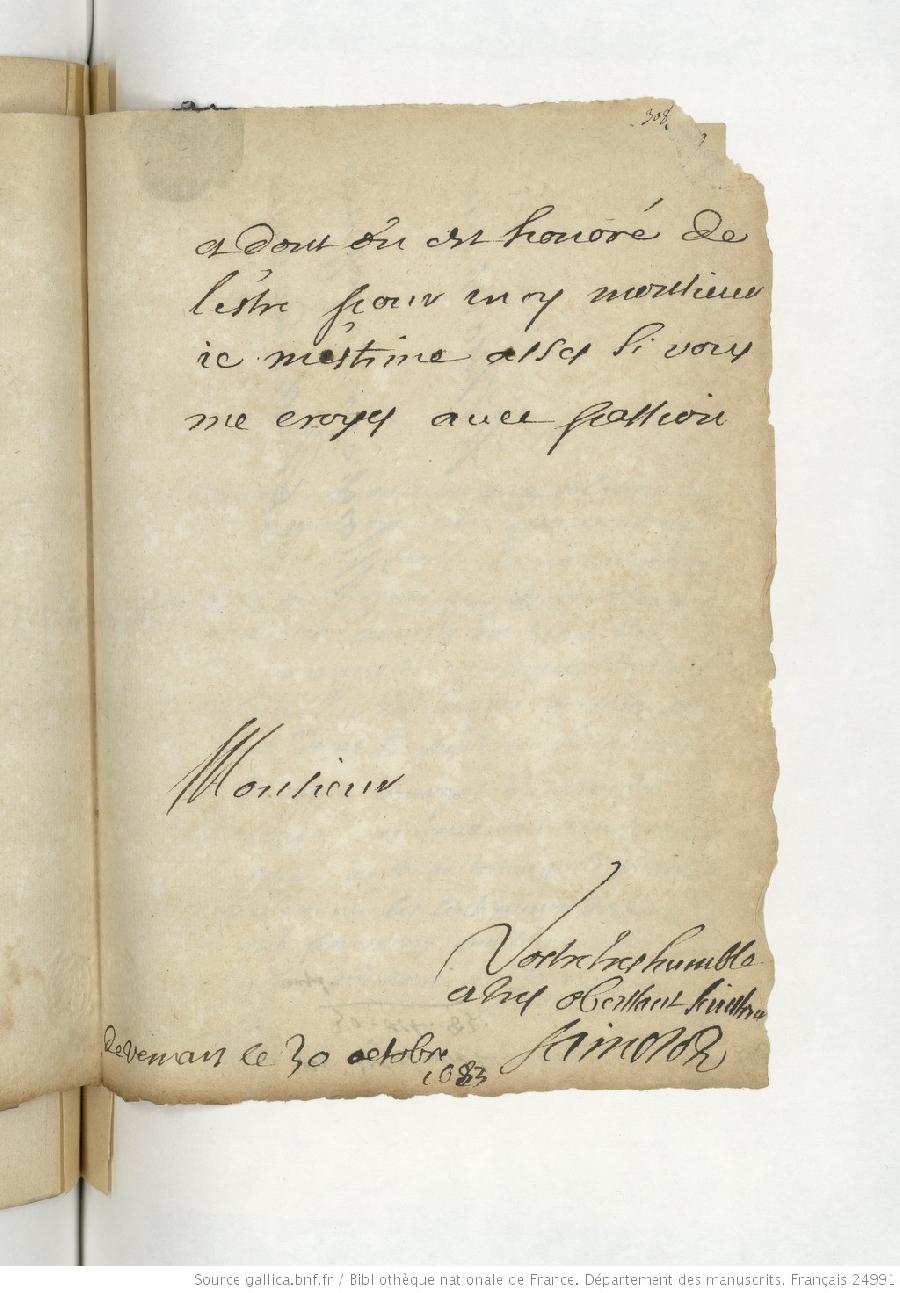 308
et dont on est honoré de
l'estre pour moy monsieur
ie m'estime assés si vous
me croyés auec passion
Monsieur
Vostre tres humble
et tres obeissant seruiteur
le 30 octobre
1683
Source gallica.bnf.fr / Bibliothèque nationale de France. Département des manuscrits. Français 24991